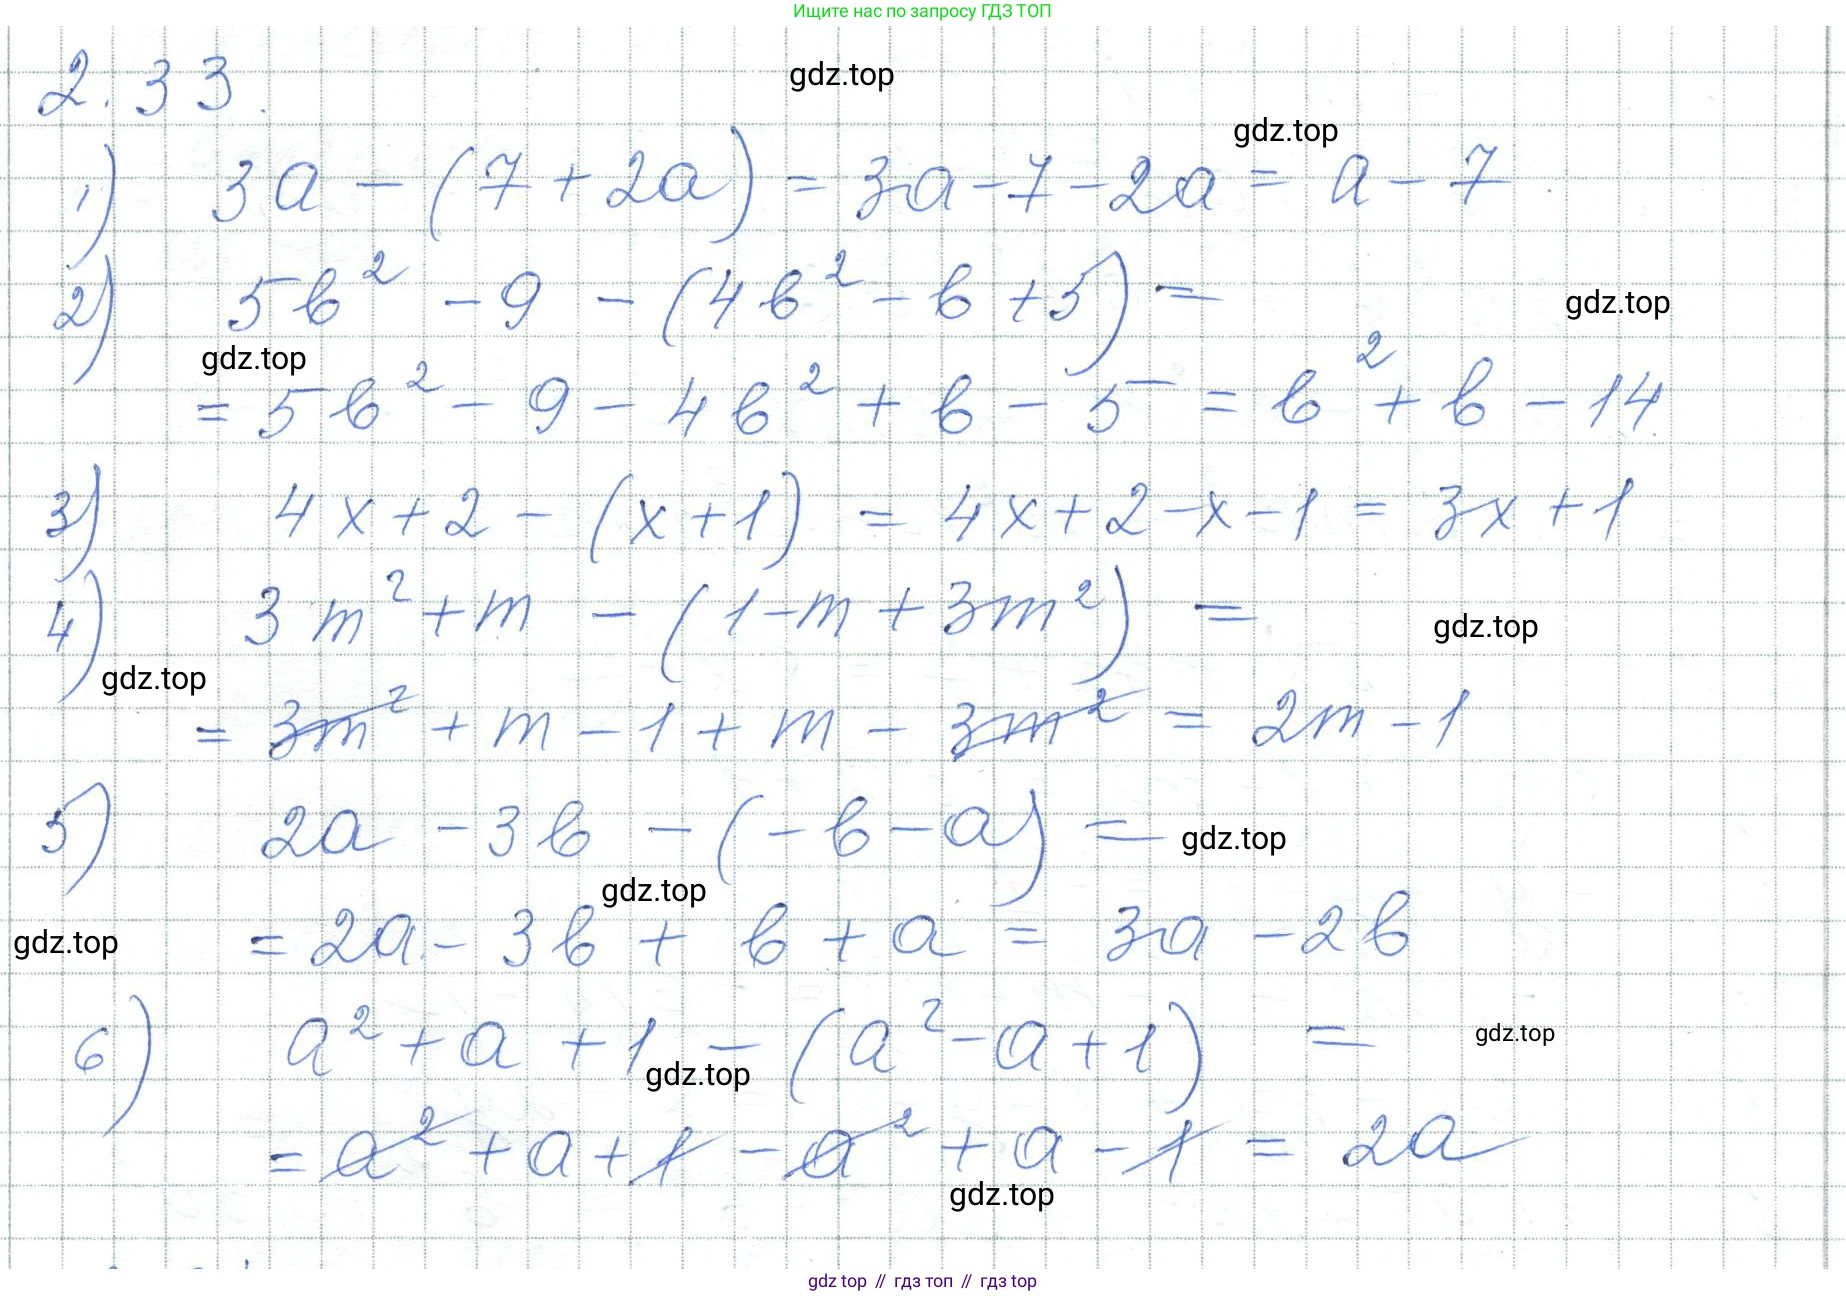 Ищите нас по запросу ГДЗ ТОП
2.33.
gdz.top
gdz.top
1) 3a - (7 + 2a) = 3a - 7 - 2a = a - 7
2) 5b² - 9 - (4b² - b + 5) =
gdz.top
gdz.top
= 5b² - 9 - 4b² + b - 5 = b² + b - 14
3) 4x + 2 - (x + 1) = 4x + 2 - x - 1 = 3x + 1
4) 3m² + m - (1 - m + 3m²) =
gdz.top
gdz.top
= 3m² + m - 1 + m - 3m² = 2m - 1
5) 2a - 3b - (-b - a) =
gdz.top
gdz.top
gdz.top
= 2a - 3b + b + a = 3a - 2b
6) a² + a + 1 - (a² - a + 1) =
gdz.top
gdz.top
= a² + a + 1 - a² + a - 1 = 2a
gdz.top
gdz top // гдз топ // гдз top